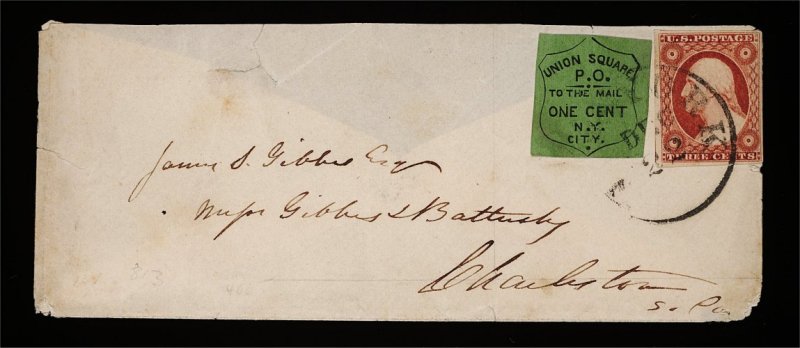 UNION SQUARE
P.O.
TO THE MAIL
ONE CENT
N.Y.
CITY.
U.S. POSTAGE
THREE CENTS
James S. Gibbes Esq
Messrs Gibbes & Battersby
Charleston
S. Ca